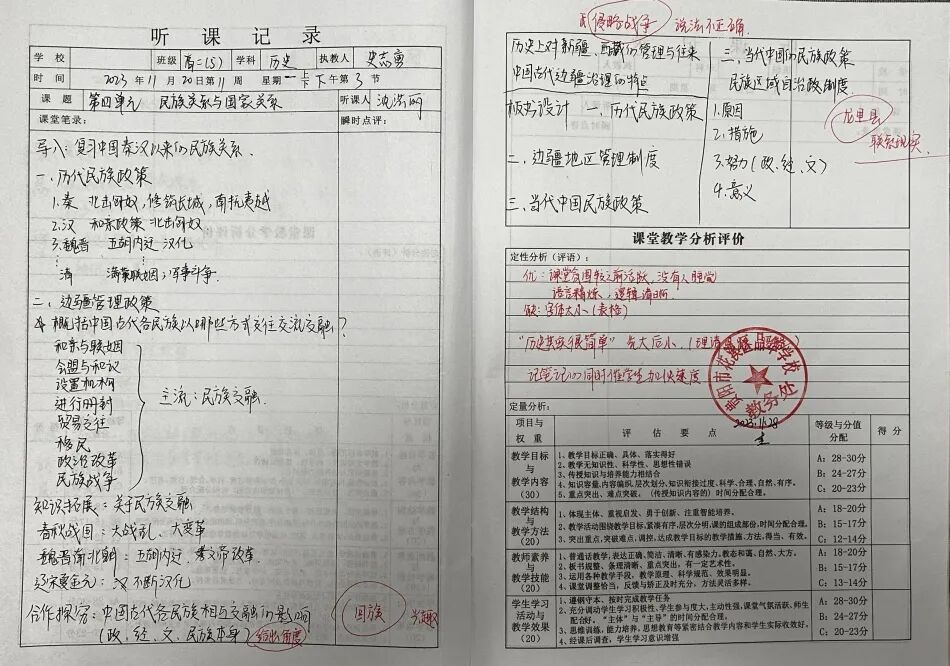 听课记录
学校 班级 高二(5) 学科 历史 执教人 史志勇
时间 2023年11月20日第11周 星期一 上下午第3节
课题 第四单元 民族关系与国家关系 听课人
课堂笔录: 瞬时点评:
导入:复习中国秦汉以来的民族关系.
一.历代民族政策
1.秦 北击匈奴,修筑长城,南抚夷越
2.汉 和亲政策 北击匈奴
3.魏晋 五胡内迁 汉化
清 满蒙联姻;军事斗争.
二.边疆管理政策
概括中国古代各民族以哪些方式交往交流交融?
和亲与联姻
会盟与和议
设置机构
进行册封
贸易交往
移民
政治改革
民族战争
主流:民族交融.
知识拓展:关于民族交融
春秋战国:大战乱、大变革
魏晋南北朝:五胡内迁.孝文帝改革
辽宋夏金元:汉 不断汉化
合作探究:中国古代各民族相互交融的影响
(政、经、文、民族本身) 给出角度
回族
侵略战争 说法不正确.
历史上对新疆、西藏的管理与往来
中国古代边疆治理的特点
板书设计 一.历代民族政策
二.边疆地区管理制度
三.当代中国民族政策
三.当代中国的民族政策
民族区域自治制度
1.原因
2.措施
3.努力(政、经、文)
4.意义
龙里县
联系现实
课堂教学分析评价
定性分析(评语):
优:课堂氛围较之前活跃,没有人睡觉
语言精炼,逻辑清晰.
缺:字体大小(表格)
"历史其实很简单" 先大后小.
记笔记的同时催学生加快速度
贵阳市花溪 学校
教务处
2023.11.28
定量分析:
项目与权重 评估要点 等级与分值分配 得分
教学目标与教学内容(30)
1、教学目标正确、具体、落实得好
2、教学无知识性、科学性、思想性错误
3、传授知识与培养能力相结合
4、知识容量,内容编织,层次划分,知识衔接过度、科学、合理、自然、有序。
5、重点突出、难点突破。(传授知识内容的)时间分配合理。
A:28-30分
B:24-27分
C:20-23分
教学结构与教学方法(20)
1、体现主体、重视启发、勇于创新、注重智能培养。
2、教学活动围绕教学目标,紧凑有序,层次分明,课的组成部份,时间分配合理。
3、突出重点,突破难点,调控,达成教学目标的教学措施、方法,得当、有效。
A:18-20分
B:15-17分
C:12-14分
教师素养与教学技能(20)
1、普通话教学,表达正确、简洁、清晰、有感染力,教态和蔼、自然、大方。
2、板书规整、条理清晰、重点突出,有一定艺术性。
3、运用各种教学手段,教学原理、科学规范、效果明显。
4、课堂调整恰当,反馈与矫正及时充分,方法灵活多样。
A:18-20分
B:15-17分
C:13-14分
学生学习活动与教学效果(20)
1、遵纲守本、按时完成教学任务
2、充分调动学生学习积极性,学生参与度大,主动性强,课堂气氛活跃、师生配合好,“主体”与“主导”的时间分配合理。
3、思维训练,能力培养,思想教育等紧密结合教学内容和学生实际收效好。
4、经课后调查,学生学习意识增强
A:28-30分
B:24-27分
C:20-23分